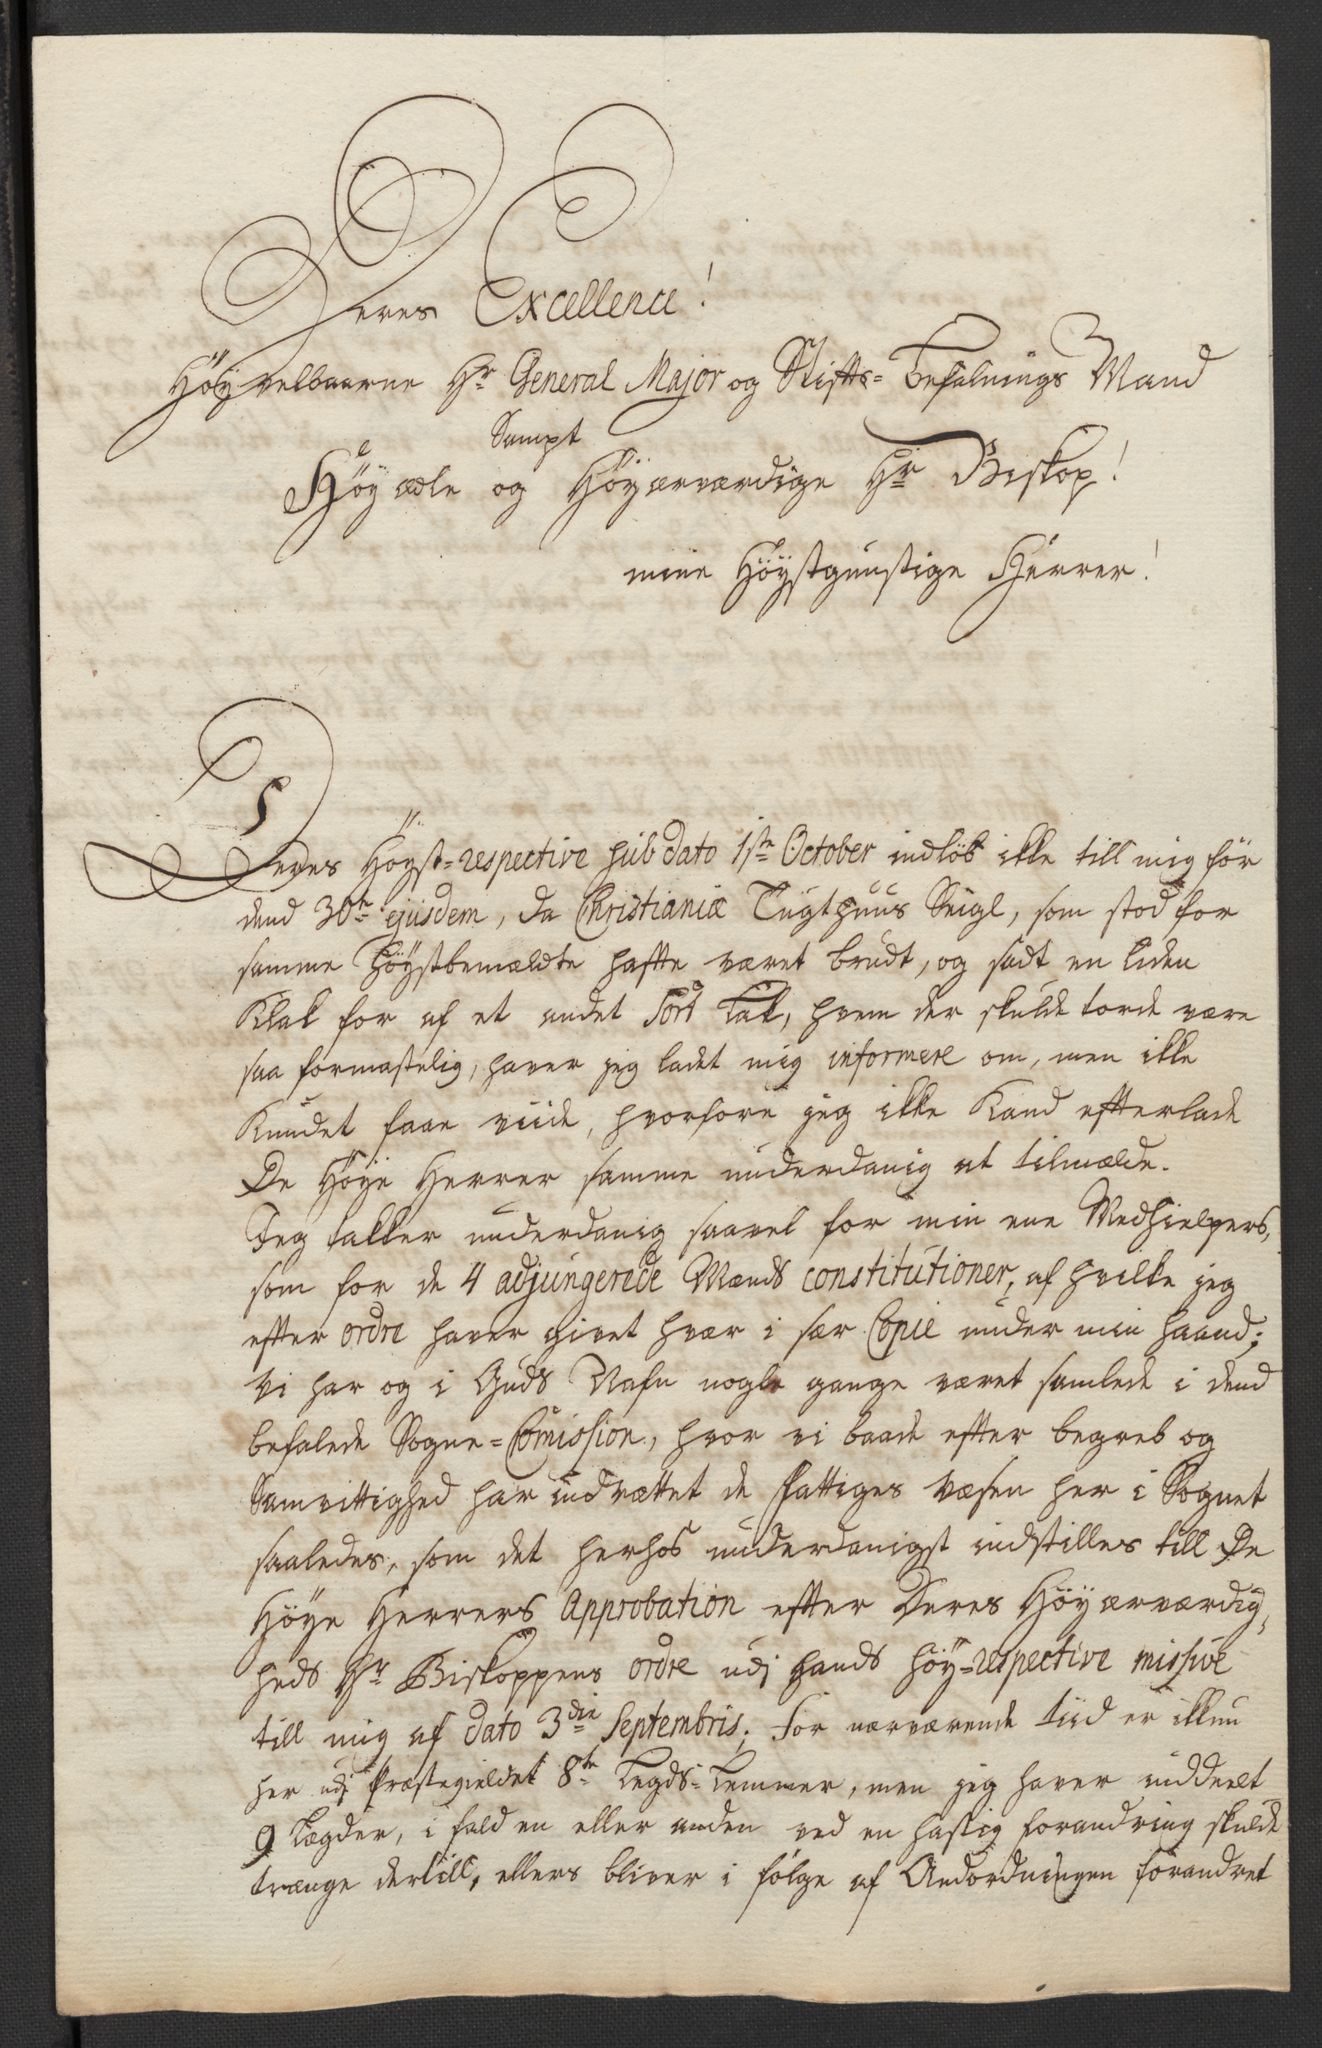 Deres Excellence!
Höÿvelbaarne Hr General Major og Stifts=Befalnings Mand
Sampt
Höÿædle og Höÿærværdige Hr Biskop!
mine Höÿstgunstige Herrer!
Deres Höÿst=respective sub dato 1ste October indlöb ikke till mig för
dend 30te ejusdem, da Christianiæ Tugthuus Seigl, som stod for
samme Höÿstbemældte hafte været brudt, og sadt en liden
Klak for af et andet sort Lak, hvem der skulde torde være
saa formastelig, haver jeg ladet mig informere om, men ikke
Kundet faae viide, hvorfore jeg ikke Kand efterlade
De Höÿe Herrer samme underdanig at tilmælde.
Jeg takker underdanig saavel for min ene Medhielpers,
som for de 4 adjungerede Mænds constitutioner, af hvilke jeg
efter ordre haver givet hvær i sær Copie under min haand;
Vi har og i Guds Nafn nogle gange været samlede i dend
befalede Sogne=Comission, hvor vi baade efter begreb og
Samvittighed har indrættet de fattiges Væsen her i Sognet
saaledes, som det herhos underdanigst indstilles till De
Höÿe Herrers Approbation efter Deres Höÿærværdig,
heds Hr Biskoppens ordre udj hands höÿ=respective missive
till mig af dato 3die Septembris; For nærværende tiid er ikkun
her udj Præstegieldet 8te Legds=Lemmer, men jeg haver inddeelt
9 Lægder, i fald en eller anden ved en hastig forandring skulde
trænge dertill, ellers bliver i fölge af Andordningen forandret